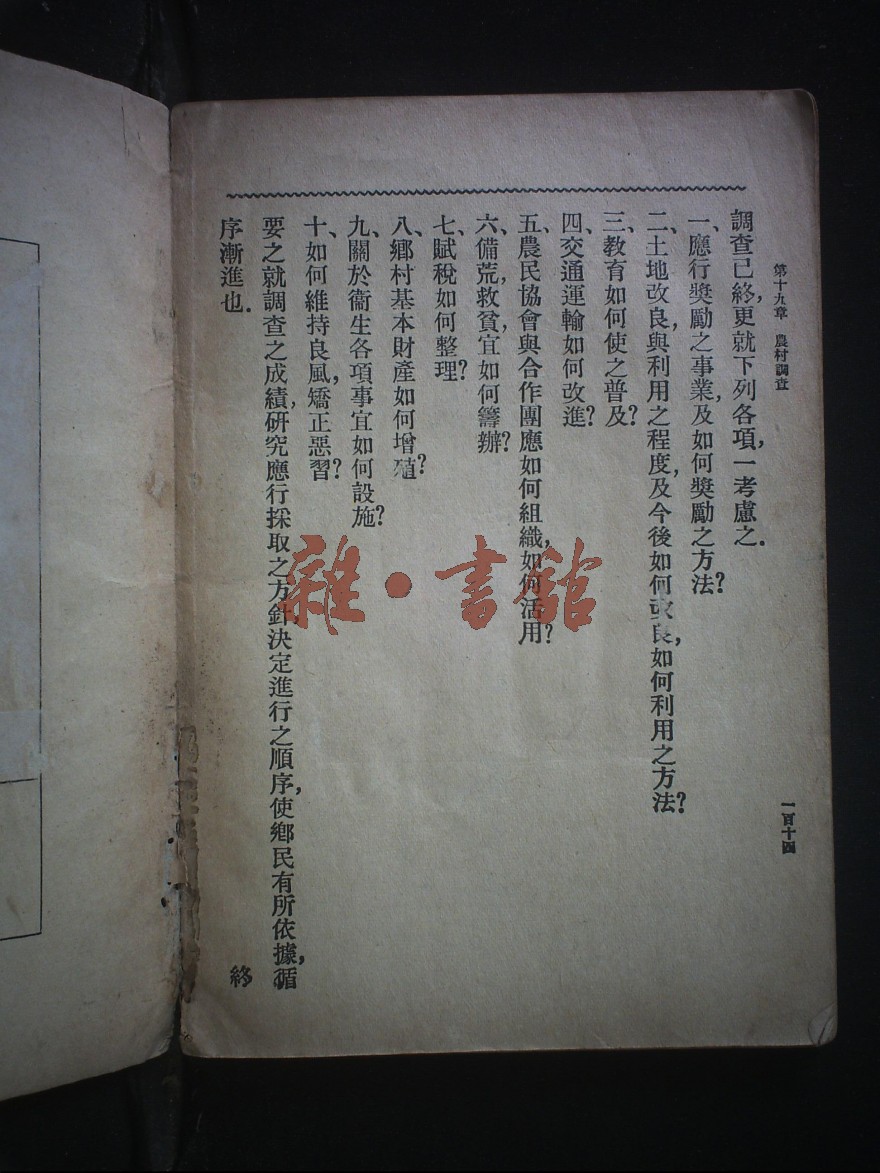 第十九章　農村調查
一百十四
調查已終，更就下列各項，一考慮之．
一、應行獎勵之事業，及如何獎勵之方法？
二、土地改良，與利用之程度，及今後如何改良，如何利用之方法？
三、教育如何使之普及？
四、交通運輸如何改進？
五、農民協會與合作團應如何組織，如何活用？
六、備荒，救貧，宜如何籌辦？
七、賦稅如何整理？
八、鄉村基本財產如何增殖？
九、關於衞生各項事宜如何設施？
十、如何維持良風，矯正惡習？
要之就調查之成績，研究應行採取之方針，決定進行之順序，使鄉民有所依據，循
序漸進也．
終
雜·書館